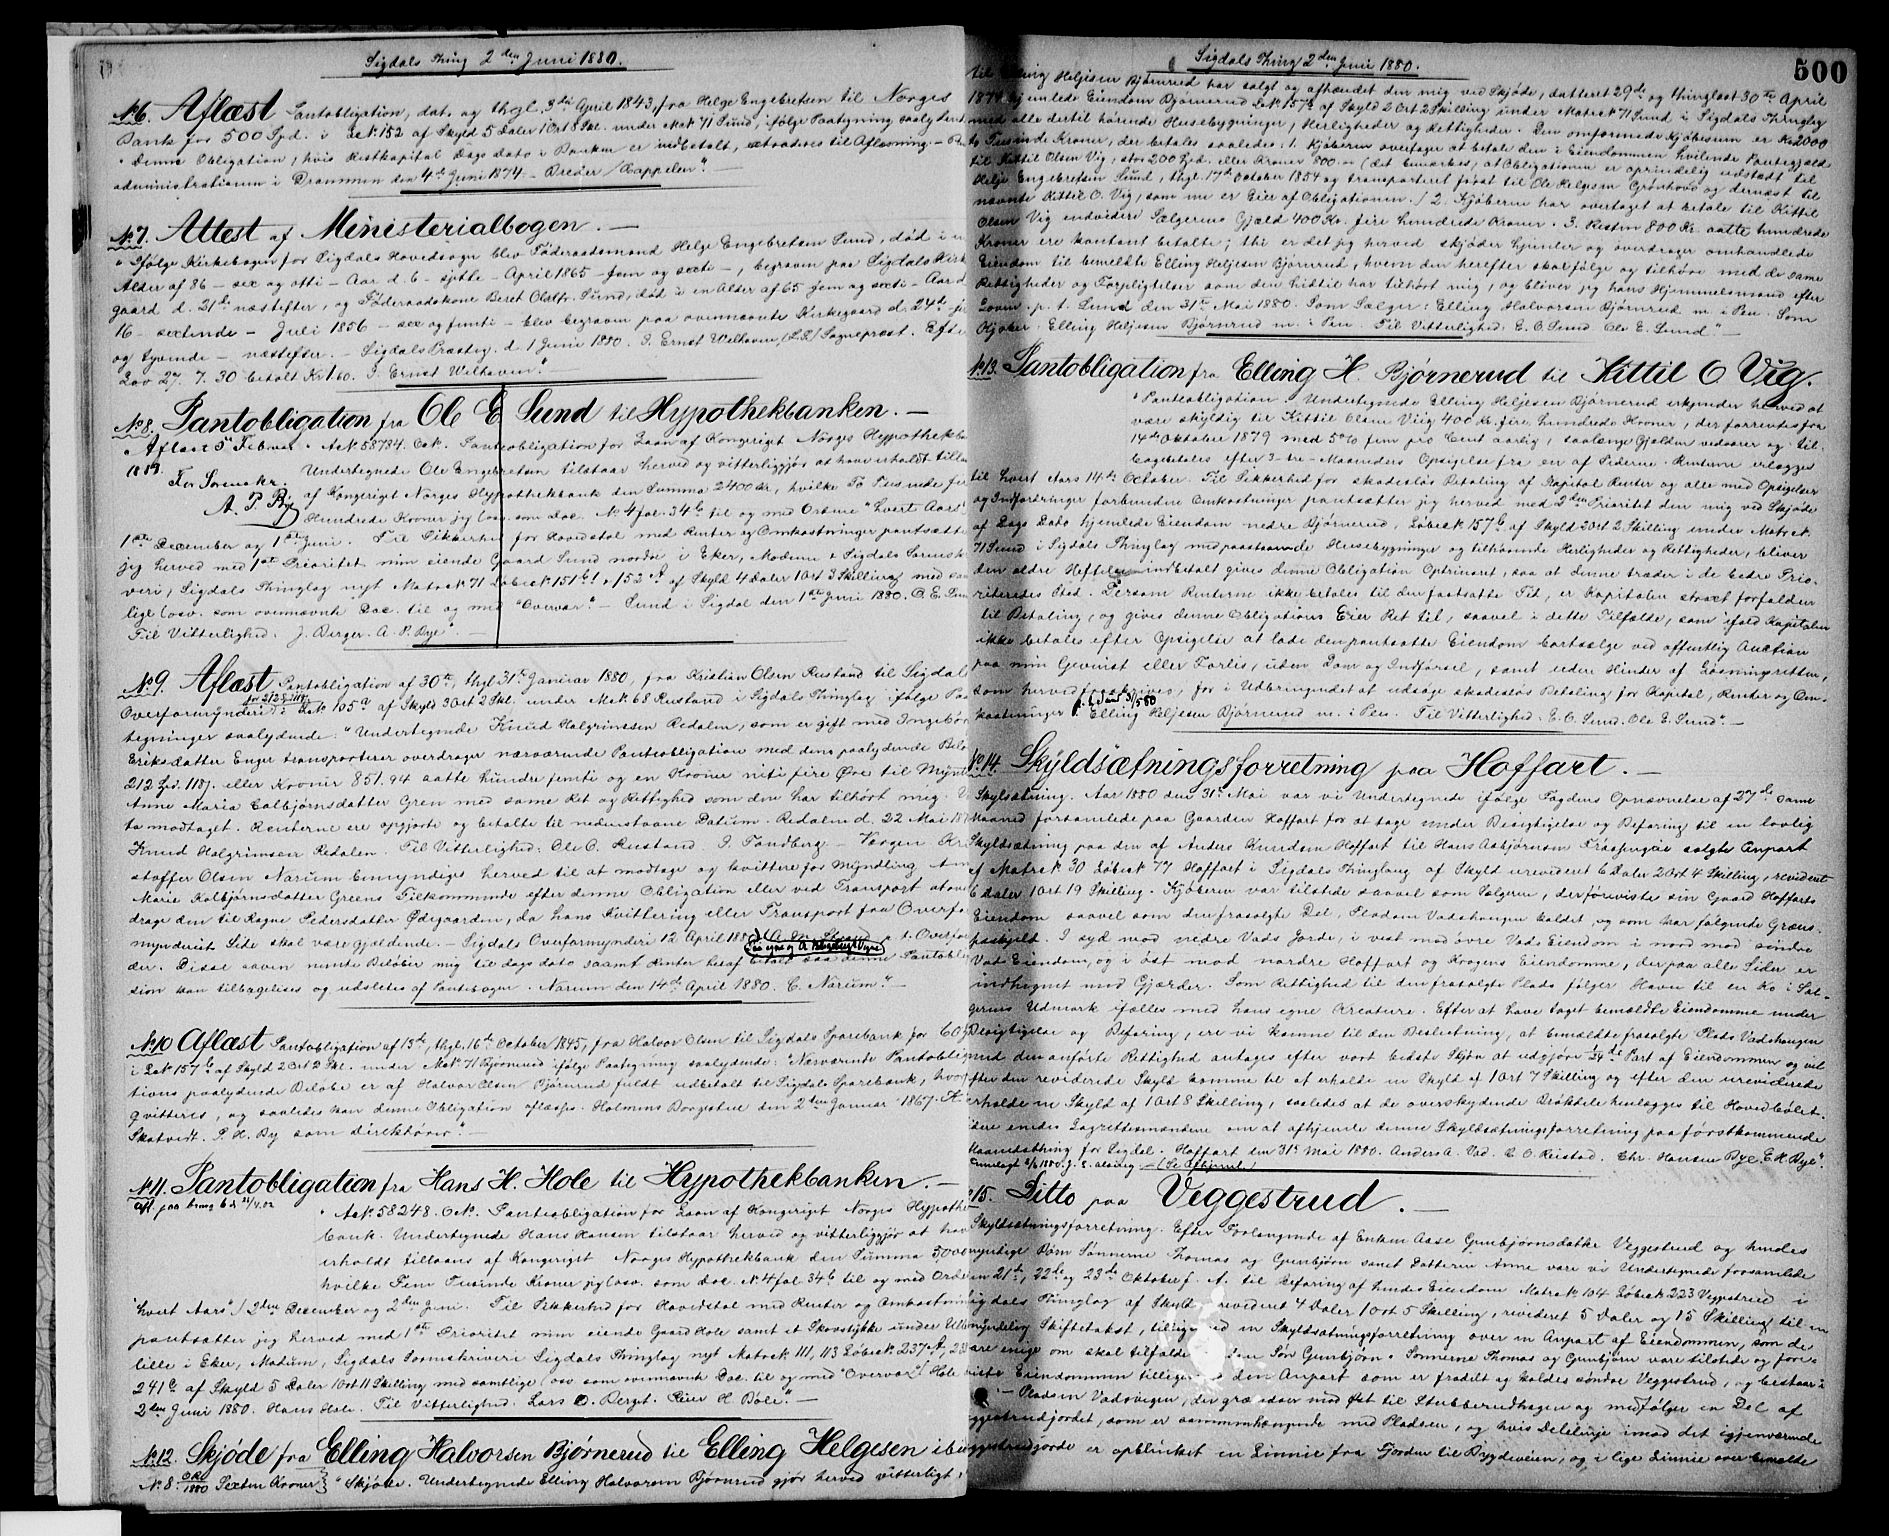 Sigdals Thing 2den Juni 1880.
No 6. Aflæst Pantobligation, dat. og thgl. 3die April 1843, fra Helge Engebretsen til Norges
Bank for 500 Spd. i Løk 152 af Skyld 5 Daler 1 Ort 8 Skl. under Mat. 71 Sund, ifølge Paategning saalydende
"Denne Obligation, hvis Restkapital Dags Dato i Banken er indbetalt, extraderes til Aflæsning –
administrationen i Drammen den 4de Juni 1874. Breder / Cappelen". —
No 7. Attest af Ministerialbogen. —
"Ifølge Kirkebogen for Sigdals Hovedsogn blev Føderaadsmand Helge Engebretsen Sund, død i en
Alder af 86 – sex og otti – Aar d. 6 – sjette – April 1865 – fem og sexti –, begraven paa Sigdals Kirke
gaard d. 21de næstefter, og Føderaadskone Beret Olsdtr. Sund, død i en Alder af 65 fem og sexti – Aar d.
16 – sextende – Juli 1856 – sex og femti – blev begraven paa ovennævnte Kirkegaard d. 24de
og tyvende – næstefter. – Sigdals Præsteg. d. 1 Juni 1880. J. Ernst Welhaven, (L.S.) Sogneprest. Efter
Lov 27. 7. 30 betalt Kr 1.60. J. Ernst Welhaven". —
No 8. Pantobligation fra Ole E Sund til Hypothekbanken. —
Aflæst 5 Februar "Ask. 58734. Pantobligation for Laan af Kongeriget Norges Hypothekba
1883. Undertegnede Ole Engebretsen tilstaar herved og vitterliggjør at have erholdt tillaans
For Sorenskr. af Kongeriget Norges Hypothekbank den Summa 2400 Kr., hvilke To Tusinde fire
A. P. Bye Hundrede Kroner jeg (osv. som Doc. No 4 fol. 34b til og med Ordene "hvert Aars"
1ste December og 1ste Juni. Til Sikkerhed for Hovedstol med Renter og Omkostninger pantsætter
jeg herved med 1ste Prioritet min eiende Gaard Sund nordre i Eker, Modum & Sigdals Sorenskri
veri, Sigdals Thinglag nyt Matr. No 71 Løbe No 151b, 152a af Skyld 4 Daler 1 Ort 3 Skilling med sam
lige (osv. som ovennævnte Doc. til og med "Overvær". – Sund i Sigdal den 1ste Juni 1880. O. E. Sund
Til Vitterlighed. J. Berger. A. P. Bye". —
No 9. Aflæst Pantobligation af 30te, thgl. 31te Januar 1880, fra Kristian Olsen Rustand til Sigdals
Overformynderi for 212 S 118 i Løk 105a af Skyld 3 Ort 2 Skl. under Mat. 68 Rustand i Sigdals Thinglag ifølge Paa
tegninger saalydende: "Undertegnede Knud Halgrimssen Redalen, som er gift med Ingebor
Eriksdatter Enger transporterer overdrager nærværende Panteobligation med dens paalydende Beløb
212 Spd. 118 s. eller Kroner 851.94 aatte hundre femti og en Kroner niti fire Øre til Mynt
Anne Maria Colbjørnsdatter Green med samme Ret og Rettighed som den har tilhørt mig.
ta modtaget. Renterne ere opgjorte og betalte til nedenstaaende Datum. Redalen d. 22 Mai 187
Knud Halgrimsen Redalen. Til Vitterlighed: Ole O. Rustand. J. Tandberg. – Værgen Kri
stoffer Olsen Narum bemyndiges herved til at modtage og kvittere for Myndling Anne
Marie Kolbjørnsdatter Greens Tilkommende efter denne Obligation eller ved Transport at over
drage den til Ragne Pedersdatter Ødegaarden, da hans Kvittering eller Transport fra Overfor
mynderiets Side skal være gjældende. – Sigdals Overformynderi 12 April 1880 p. t. Overfor
der. Disse oven nevnte Beløber mig til dags dato saamt Renter betaf betalt saa denne Pantobliga
tion kan tilbagelises og udsletes af Pantebogen. Narum den 14de April 1880. C. Narum". —
No 10 Aflæst Pantobligation af 13de, thgl. 16de October 1845, fra Halvor Olsen til Sigdals Sparebank for 60
i Løk 157b af Skyld 2 Ort 2 Skl. under Mat. 71 Bjørnerud ifølge Paategning saalydende: "Nærværende Pantobliga
tions paalydende Beløbe er af Halvor Olsen Bjørnrud fuldt udbetalt til Sigdals Sparebank, hvorfor
qvitteres, og saaledes kan denne Obligation aflæses. Holmens Borgestue den 2den Januar 1867.
Skatvedt. P. H. By som Direktører". —
No 11. Pantobligation fra Hans H. Hole til Hypothekbanken. —
afl. paa ting 6 d 24/4.02 "Ask. 58248. Panteobligation for Laan af Kongeriget Norges Hypothek
bank. Undertegnede Hans Hansen tilstaar herved og vitterliggjør at have
erholdt tillaans af Kongeriget Norges Hypothekbank den Summa 5000
hvilke Fem Tusinde Kroner jeg (osv. som Doc. No. 4 fol. 34b til og med Ordene
"hvert Aars") 2den December og 2den Juni. Til Sikkerhed for Hovedstol med Renter og Omkostninger
pantsætter jeg herved med 1ste Prioritet min eiende Gaard Hole samt et Skovstykke under Ulle
lille i Eker, Modum, Sigdals Sorenskriveri Sigdals Thinglag nyt Matr. No 111, 113 Løbe No 237a,
241a af Skyld 5 Daler 1 Ort 11 Skilling med samtlige (osv som ovennævnte Doc. til og med "Overvær". Hole
2den Juni 1880. Hans Hole. Til Vitterlighed. Lars O. Berget. Peder H. Bøle". —
No. 12. Skjøde fra Elling Halvorsen Bjørnerud til Elling Helgesen ibid
No. 8. 1880 Sexten Kroner} "Skjøde. Undertegnede Elling Halvorsen Bjørnrud gjør herved vitterligt
Sigdals Thing 2den Juni 1880.
500
til Elling Heljesen Bjørnerud har solgt og afhændet den mig ved Skjøde, datteret 29de og thinglæst 30te April
1874 hjemlede Eiendom Bjørnerud Løk 157b af Skyld 2 Ort 2 Skilling under Matr. 71 Sund i Sigdals Thinglag
med alle dertil hørende Husebygninger, Herligheder og Rettigheder. Den omforenede Kjøbesum er Kr 2000
to Tusinde Kroner, der betales saaledes: 1. Kjøberen overtager at betale den i Eiendommen hvilende Pantegjæld
til Kittil Olsen Vig, stor 200 Spd. eller Kroner 800 – (det bemærkes, at Obligationen er oprindelig udstædt til
Helje Engebretsen Sund, thgl. 17de October 1854 og transporteret først til Ole Helgesen Grønhovd og dernæst til
nævnte Kittil O. Vig, som nu er Eier af Obligationen.) 2. Kjøberen har overtaget at betale til Kittil
Olsen Vig endvidere Sælgerens Gjæld 400 Kr. fire hundrede Kroner. 3. Resten 800 Kr. aatte hundrede
Kroner ere kontant betalte; thi er det jeg herved skjøder hjemler og overdrager omhandlede
Eiendom til bemeldte Elling Heljesen Bjørnerud, hvem den herefter skal følge og tilhøre med de samme
Rettigheder og Forpligtelser som den hidtil har tilhørt mig, og bliver jeg hans Hjemmelsmand efter
Loven. p. t. Sund den 31te Mai 1880. Som Sælger: Elling Halvorsen Bjørnrud m. i Pen. Som
Kjøber: Elling Heljesen Bjørnrud m. i Pen. Til Vitterlighed: E. O. Sund. Ole E. Sund". —
No 13. Pantobligation fra Elling H. Bjørnerud til Kittil O Vig.
"Panteobligation. Undertegnede Elling Heljesen Bjørnerud erkjender herved at
være skyldig til Kittil Olsen Viig 400 Kr. fire hundrede Kroner, der forrentes fra
14de Oktober 1879 med 5% fem pro Cent aarlig, saalænge Gjælden vedvarer og til-
bagebetales efter 3 – tre – Maaneders Opsigelse fra en af Siderne. Renterne erlægges
til hvert Aars 14de October. Til Sikkerhed for skadesløs Betaling af Kapital Renter og alle med Opsigelser
og Indfordringer forbundne Omkostninger pantsætter jeg herved med 2den Prioritet den mig ved Skjøde
af Dags Dato hjemlede Eiendom nedre Bjørnerud, Løbe No 157b af Skyld 2 Ort 2 Skilling under Matr. No
71 Sund i Sigdals Thinglag med paastaaende Husebygninger og tilhørende Herligheder og Rettigheder, bliver
den ældre Heftelse indbetalt gives denne Obligation Optrinsret, saa at denne træder i de bedre Prio-
riteredes Sted. Dersom Renterne ikke betales til den fastsatte Tid, er Kapitalen straxt forfalden
til Betaling, og gives denne Obligations Eier Ret til, saavel i dette Tilfælde, som ifald Kapitalen
ikke betales efter Opsigelse at lade den pantsatte Eiendom bortsælge ved offentlig Auction
paa min Gevinst eller Forlis, uden Dom og Indførsel, samt uden Hinder af Løsningsretten,
som herved frafskrives, for i Udbringendet at udsøge skadesløs Betaling for Kapital, Renter og Om-
kostninger p. t. Sund 31/5 80 Elling Heljesen Bjørnerud m. i Pen. Til Vitterlighed: E. O. Sund. Ole E. Sund". —
No. 14. Skyldsætningsforretning paa Hoffart. —
Skyldsætning. Aar 1880 den 31te Mai var vi Undertegnede ifølge Fogdens Opnævnelse af 27de samme
Maaned forsamlede paa Gaarden Hoffart for at tage under Besigtigelse og Befaring til en lovlig
Skyldsætning paa den af Anders Knudsen Hoffart til Hans Asbjørnsen solgte Anpart
af Matr. No 30 Løbe No 77 Hoffart i Sigdals Thinglaug af Skyld urevideret 6 Daler 2 Ort 4 Skilling, revideret
6 Daler 1 Ort 19 Skilling. Kjøberen var tilstede saavel som Sælgeren, der forevista sin Gaard Hoffarts
Eiendom saavel som den frasolgte Del, Pladsen Vadshaugen kaldet, og som har følgende Græns-
paskjell. I syd mod nedre Vads Jorde, i vest mod øvre Vads Eiendom i nord mod søndre
Vad Eiendom, og i øst mod nordre Hoffart og Krogens Eiendomme, der paa alle Sider er
indhegnet med Gjærder. Som Rettighed til den frasolgte Plads følger Havn til en Ko i Sæl-
gerens Udmark fælles med hans egne Kreature. Efter at have taget bemældte Eiendomme under
Besigtigelse og Befaring, ere vi komne til den Beslutning, at bemældte frasolgte Plads Vadshaugen
med den anførte Rettighed antages efter vort bedste Skjøn at udgjøre 1/24de Part af Eiendommen og vil
efter den reviderede Skyld komme til at erholde en Skyld af 1 Ort 7 Skilling og efter den ureviderede
erholde en Skyld af 1 Ort 8 Skilling, saaledes at de overskydende Brøkdele henlægges til Hovedbølet.
Videre enedes Lagrettesmændene om at afhjemle denne Skyldsætningsforretning paa førstkommende
Maanedsthing for Sigdal. Hoffart den 31te Mai 1880. Anders A. Vad. E. O. Reistad. Chr. Hansen Bye. E. H. Bye".
No 15. Ditto paa Veggestrud. —
Skyldsætningsforretning. Efter Forlangende af Enken Aase Gunbjørnsdatter Veggestrud og hendes
myndige Børn Sønnerne Thomas og Gunbjørn samt Datteren Anne vare vi Undertegnede forsamlede
den 21de, 22de og 23de Oktober f. A. til Befaring af hendes Eiendom Matr. No 104 Løbe No 223 Veggestrud i
Sigdals Thinglag af Skyld urevideret 4 Daler 1 Ort 5 Skilling, revideret 5 Daler og 15 Skilling til en
myndelig Skiftetakst, tilligemed en Skyldsætningsforretning over en Anpart af Eiendommen, som de
vare enige om skal tilfalde den Søn Gunbjørn. Sønnerne Thomas og Gunbjørn vare tilstede og fore-
viste Eiendommen tillige den Anpart som er fradelt og kaldes søndre Veggestrud, og bestaar i
– Pladsen Vadsvigen, der grændser mod Øst til Stubberudhagen og medfølger en Del af
Veggestrudjordet, som er sammenhængende med Pladsen, og hvis Delelinje imod det igjenværende
Veggestrudjorde er opblinket en Linnie fra Fjorden til Bygdeveien, og i lige Linnie over bemeldte